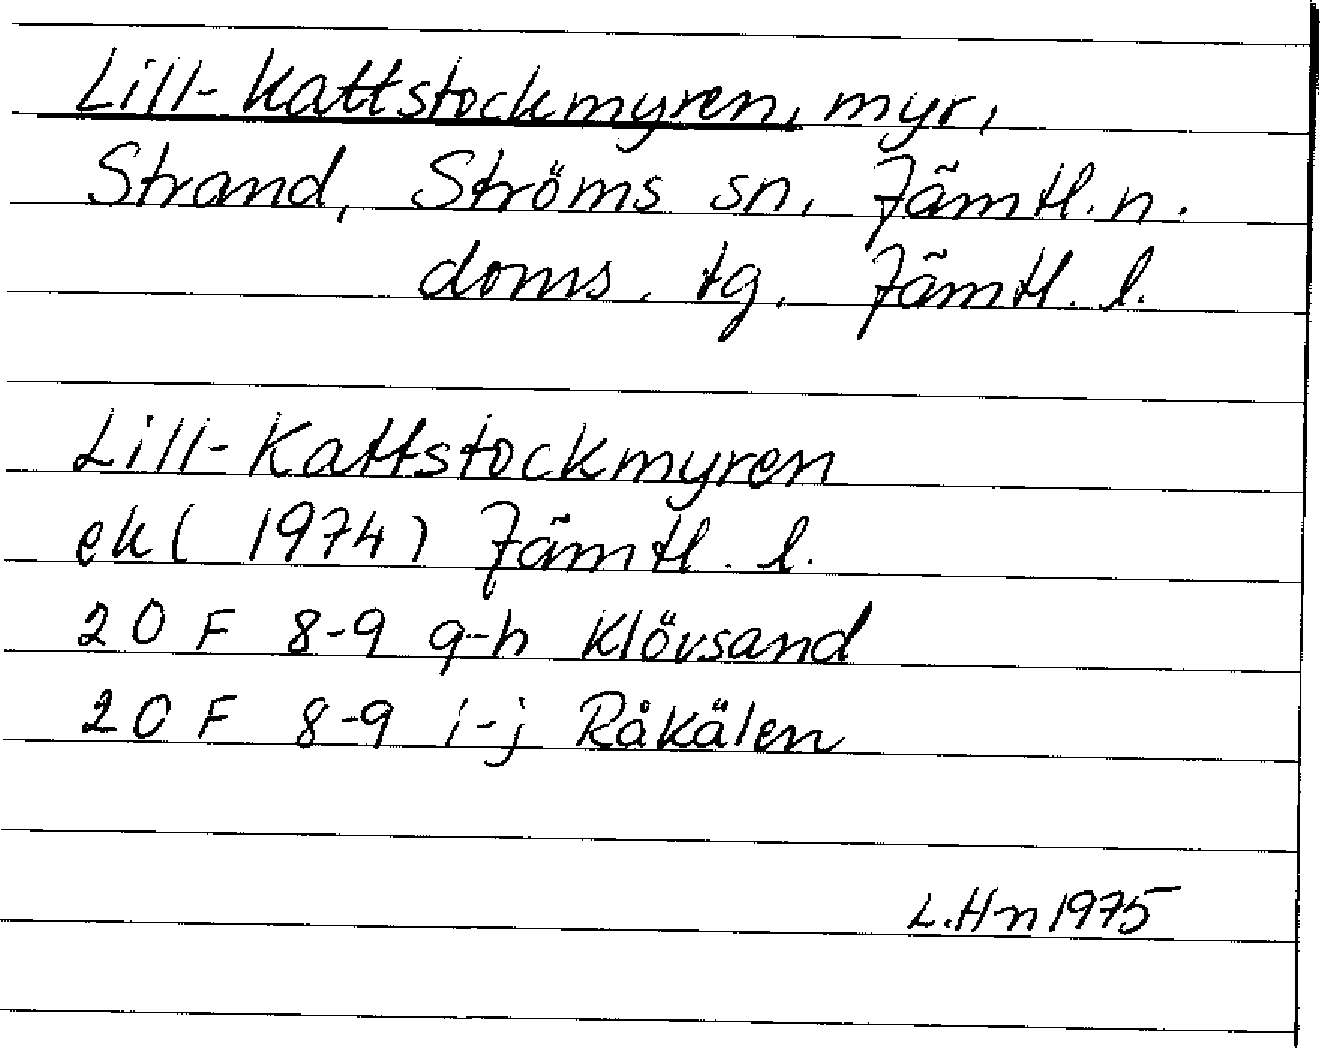 Lill-Kattstockmyren, myr,
Strand, Ströms sn, Jämtl. n.
doms. tg. Jämtl. l.
Lill-Kattstockmyren
ek (1974) Jämtl. l.
20 F 8-9 g-h Klövsand
20 F 8-9 i-j Råkälen
L. Hn 1975